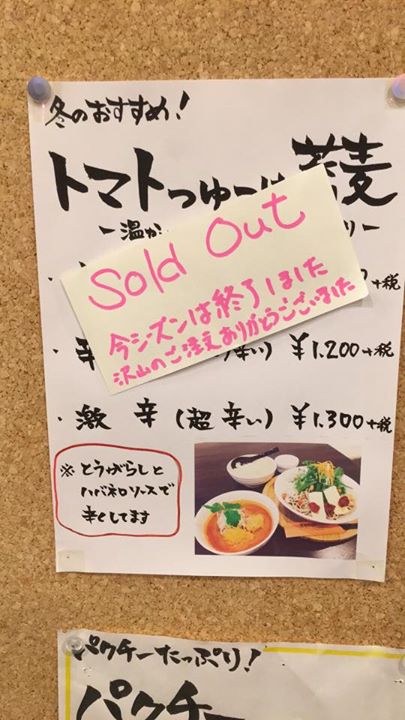 冬のおすすめ!
トマトつゆつけ蕎麦
ー温か
りー
Sold Out
今シズンは終了しました
沢山のご注文ありがとうございました
+税
辛い) ¥1.200+税
・激 辛 (超辛い) ¥1.300+税
※とうがらしと
ハバネロソースで
辛くしてます
パクチーたっぷり!
パクチー